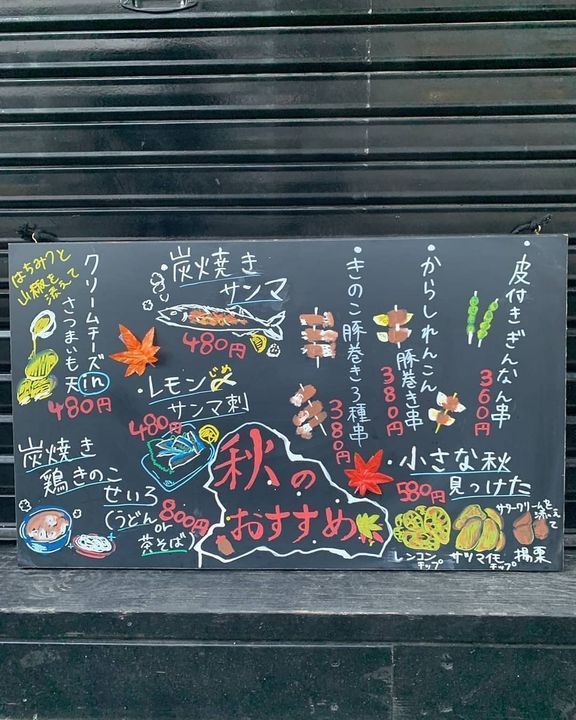 ・皮付きぎんなん串
360円
・からしれんこん
豚巻き串
380円
・きのこ豚巻き3種串
380円
・炭火焼き
サンマ
480円
クリームチーズin
さつまいも天
はちみつと
山椒を添えて
480円
・レモンじめ
サンマ刺
480円
炭焼き
鶏きのこ
せいろ
(うどん
or
茶そば)
800円
秋の
おすすめ
・小さな秋
見つけた
580円
レンコン
チップ
サツマイモ
チップ
揚栗
サワークリームを
添えて